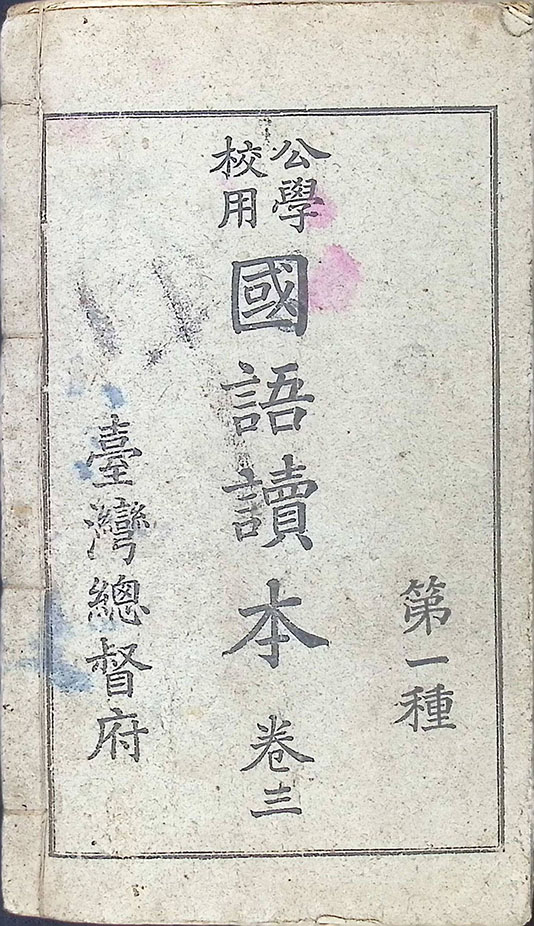 第一種
公學校用
國語讀本 卷三
臺灣總督府